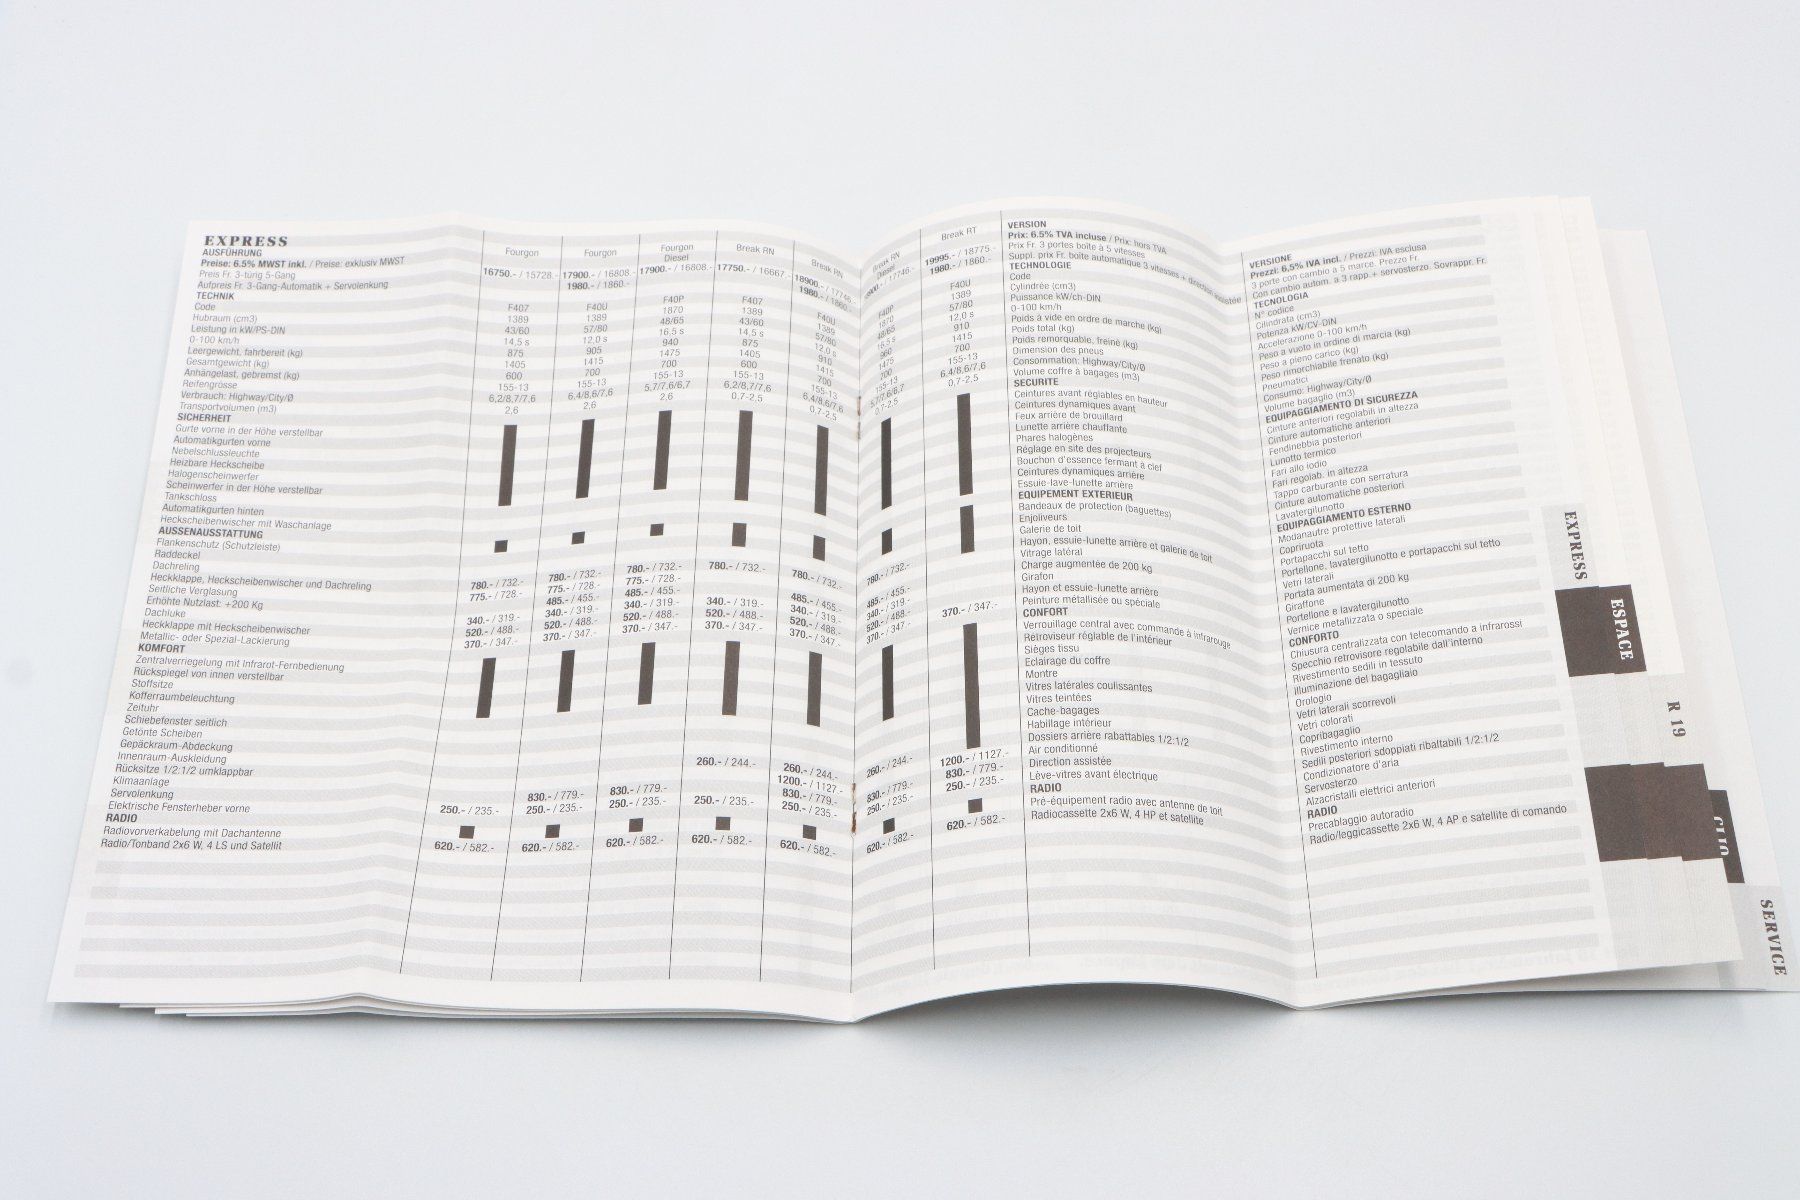 EXPRESS
AUSFÜHRUNG
Preise: 6.5% MWST inkl. / Preise: exklusiv MWST
Preis Fr. 3-türig 5-Gang
Aufpreis Fr. 3-Gang-Automatik + Servolenkung
TECHNIK
Code
Hubraum (cm3)
Leistung in kW/PS-DIN
0-100 km/h
Leergewicht, fahrbereit (kg)
Gesamtgewicht (kg)
Anhängelast, gebremst (kg)
Reifengrösse
Verbrauch: Highway/City/Ø
Transportvolumen (m3)
SICHERHEIT
Gurte vorne in der Höhe verstellbar
Automatikgurten vorne
Nebelschlussleuchte
Heizbare Heckscheibe
Halogenscheinwerfer
Scheinwerfer in der Höhe verstellbar
Tankschloss
Automatikgurten hinten
Heckscheibenwischer mit Waschanlage
AUSSENAUSSTATTUNG
Flankenschutz (Schutzleiste)
Raddeckel
Dachreling
Heckklappe, Heckscheibenwischer und Dachreling
Seitliche Verglasung
Erhöhte Nutzlast: +200 Kg
Dachluke
Heckklappe mit Heckscheibenwischer
Metallic- oder Spezial-Lackierung
KOMFORT
Zentralverriegelung mit Infrarot-Fernbedienung
Rückspiegel von innen verstellbar
Stoffsitze
Kofferraumbeleuchtung
Zeituhr
Schiebefenster seitlich
Getönte Scheiben
Gepäckraum-Abdeckung
Innenraum-Auskleidung
Rücksitze 1/2:1/2 umklappbar
Klimaanlage
Servolenkung
Elektrische Fensterheber vorne
RADIO
Radiovorverkabelung mit Dachantenne
Radio/Tonband 2x6 W, 4 LS und Satellit
Fourgon
16750.- / 15728.-
F407
1389
43/60
14,5 s
875
1405
600
155-13
6,2/8,7/7,6
2,6
780.- / 732.-
775.- / 728.-
340.- / 319.-
520.- / 488.-
370.- / 347.-
250.- / 235.-
620.- / 582.-
Fourgon
17900.- / 16808.-
1980.- / 1860.-
F40U
1389
57/80
12,0 s
905
1415
700
155-13
6,4/8,6/7,6
2,6
780.- / 732.-
775.- / 728.-
485.- / 455.-
340.- / 319.-
520.- / 488.-
370.- / 347.-
830.- / 779.-
250.- / 235.-
620.- / 582.-
Fourgon
Diesel
17900.- / 16808.-
F40P
1870
48/65
16,5 s
940
1475
700
155-13
5,7/7,6/6,7
2,6
780.- / 732.-
775.- / 728.-
485.- / 455.-
340.- / 319.-
520.- / 488.-
370.- / 347.-
830.- / 779.-
250.- / 235.-
620.- / 582.-
Break RN
17750.- / 16667.-
F407
1389
43/60
14,5 s
875
1405
600
155-13
6,2/8,7/7,6
0,7-2,5
780.- / 732.-
340.- / 319.-
520.- / 488.-
370.- / 347.-
260.- / 244.-
250.- / 235.-
620.- / 582.-
Break RN
18900.- / 17746.-
1980.- / 1860.-
F40U
1389
57/80
12,0 s
910
1415
700
155-13
6,4/8,6/7,6
0,7-2,5
780.- / 732.-
485.- / 455.-
340.- / 319.-
520.- / 488.-
370.- / 347.-
260.- / 244.-
1200.- / 1127.-
830.- / 779.-
250.- / 235.-
620.- / 582.-
Break RN
Diesel
18900.- / 17746.-
F40P
1870
48/65
16,5 s
960
1475
700
155-13
5,7/7,6/6,7
0,7-2,5
780.- / 732.-
485.- / 455.-
340.- / 319.-
520.- / 488.-
370.- / 347.-
260.- / 244.-
830.- / 779.-
250.- / 235.-
620.- / 582.-
Break RT
19995.- / 18775.-
1980.- / 1860.-
F40U
1389
57/80
12,0 s
910
1415
700
155-13
6,4/8,6/7,6
0,7-2,5
370.- / 347.-
1200.- / 1127.-
830.- / 779.-
250.- / 235.-
620.- / 582.-
VERSION
Prix: 6.5% TVA incluse / Prix: hors TVA
Prix Fr. 3 portes boîte à 5 vitesses
Suppl. prix Fr. boîte automatique 3 vitesses + direction assistée
TECHNOLOGIE
Code
Cylindrée (cm3)
Puissance kW/ch-DIN
0-100 km/h
Poids à vide en ordre de marche (kg)
Poids total (kg)
Poids remorquable, freiné (kg)
Dimension des pneus
Consommation: Highway/City/Ø
Volume coffre à bagages (m3)
SECURITE
Ceintures avant réglables en hauteur
Ceintures dynamiques avant
Feux arrière de brouillard
Lunette arrière chauffante
Phares halogènes
Réglage en site des projecteurs
Bouchon d'essence fermant à clef
Ceintures dynamiques arrière
Essuie-lave-lunette arrière
EQUIPEMENT EXTERIEUR
Bandeaux de protection (baguettes)
Enjoliveurs
Galerie de toit
Hayon, essuie-lunette arrière et galerie de toit
Vitrage latéral
Charge augmentée de 200 kg
Girafon
Hayon et essuie-lunette arrière
Peinture métallisée ou spéciale
CONFORT
Verrouillage central avec commande à infrarouge
Rétroviseur réglable de l'intérieur
Sièges tissu
Eclairage du coffre
Montre
Vitres latérales coulissantes
Vitres teintées
Cache-bagages
Habillage intérieur
Dossiers arrière rabattables 1/2:1/2
Air conditionné
Direction assistée
Lève-vitres avant électrique
RADIO
Pré-équipement radio avec antenne de toit
Radiocassette 2x6 W, 4 HP et satellite
VERSIONE
Prezzi: 6,5% IVA incl. / Prezzi: IVA esclusa
3 porte con cambio a 5 marce. Prezzo Fr.
Con cambio autom. a 3 rapp.+ servosterzo. Sovrappr. Fr.
TECNOLOGIA
N° codice
Cilindrata (cm3)
Potenza kW/CV-DIN
Accelerazione 0-100 km/h
Peso a vuoto in ordine di marcia (kg)
Peso a pieno carico (kg)
Peso rimorchiabile frenato (kg)
Pneumatici
Consumo: Highway/City/Ø
Volume bagaglio (m3)
EQUIPAGGIAMENTO DI SICUREZZA
Cinture anteriori regolabili in altezza
Cinture automatiche anteriori
Fendinebbia posteriori
Lunotto termico
Fari allo iodio
Fari regolab. in altezza
Tappo carburante con serratura
Cinture automatiche posteriori
Lavatergilunotto
EQUIPAGGIAMENTO ESTERNO
Modanautre protettive laterali
Copriruota
Portapacchi sul tetto
Portellone, lavatergilunotto e portapacchi sul tetto
Vetri laterali
Portata aumentata di 200 kg
Giraffone
Portellone e lavatergilunotto
Vernice metallizzata o speciale
CONFORTO
Chiusura centralizzata con telecomando a infrarossi
Specchio retrovisore regolabile dall'interno
Rivestimento sedili in tessuto
Illuminazione del bagagliaio
Orologio
Vetri laterali scorrevoli
Vetri colorati
Copribagaglio
Rivestimento interno
Sedili posteriori sdoppiati ribaltabili 1/2:1/2
Condizionatore d'aria
Servosterzo
Alzacristalli elettrici anteriori
RADIO
Precablaggio autoradio
Radio/leggicassette 2x6 W, 4 AP e satellite di comando
EXPRESS
ESPACE
R 19
CLIO
SERVICE